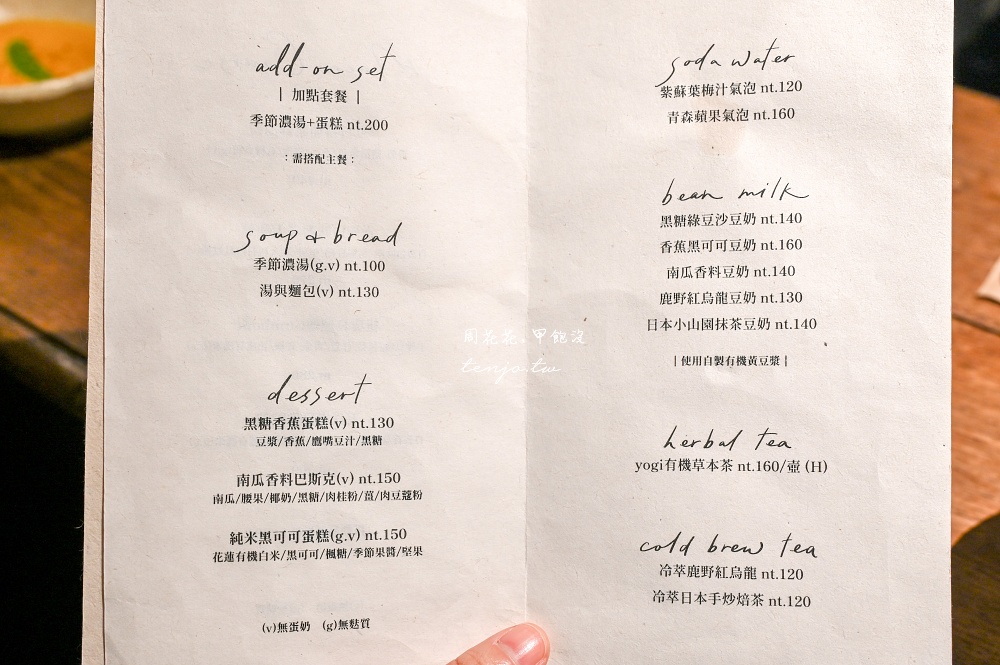 add-on set
| 加點套餐 |
季節濃湯+蛋糕 nt.200
：需搭配主餐：
soup & bread
季節濃湯(g.v) nt.100
湯與麵包(v) nt.130
dessert
黑糖香蕉蛋糕(v) nt.130
豆漿/香蕉/鷹嘴豆汁/黑糖
南瓜香料巴斯克(v) nt.150
南瓜/腰果/椰奶/黑糖/肉桂粉/薑/肉豆蔻粉
純米黑可可蛋糕(g.v) nt.150
花蓮有機白米/黑可可/楓糖/季節果醬/堅果
(v)無蛋奶 (g)無麩質
soda water
紫蘇葉梅汁氣泡 nt.120
青森蘋果氣泡 nt.160
bean milk
黑糖綠豆沙豆奶 nt.140
香蕉黑可可豆奶 nt.160
南瓜香料豆奶 nt.140
鹿野紅烏龍豆奶 nt.130
日本小山園抹茶豆奶 nt.140
| 使用自製有機黃豆漿 |
herbal tea
yogi有機草本茶 nt.160/壺 (H)
cold brew tea
冷萃鹿野紅烏龍 nt.120
冷萃日本手炒焙茶 nt.120
周花花，甲飽沒
tenjo.tw